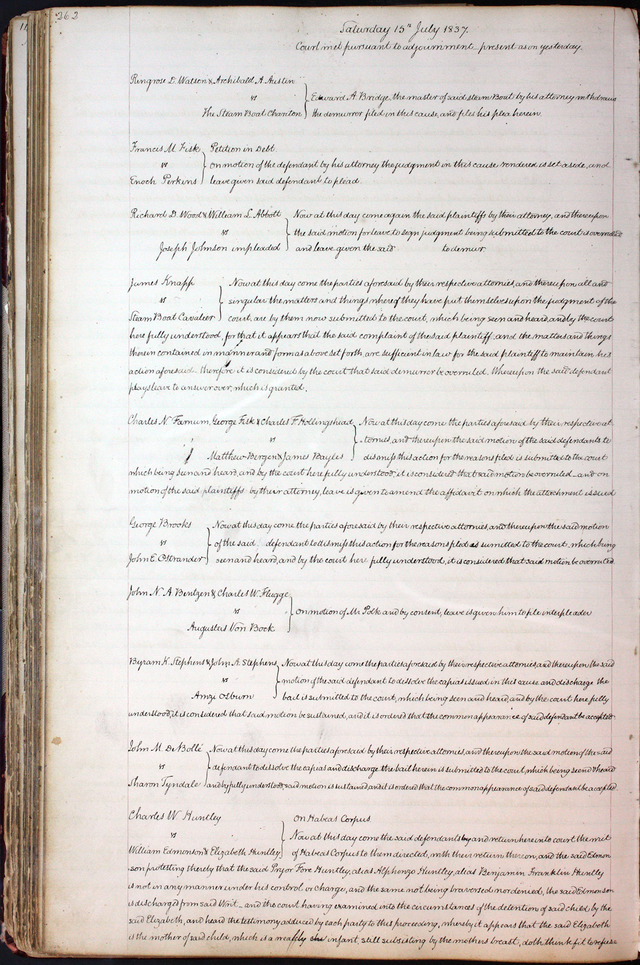 262
Saturday 15th July 1837.
Court met pursuant to adjournment present as on yesterday.
Ringrose D. Watson & Archibald A. Austin
vs
The Steam Boat Chariton
Edward A Bridge, the master of said steam Boat by his attorney withdraws
the demurrer filed in this cause, and files his plea herein.
Francis M. Fisk
vs
Enoch Perkins
Petition in Debt.
on motion of the defendant by his attorney the judgment in this cause rendered is set aside, and
leave given said defendant to plead.
Richard D. Wood & William L. Abbott
vs
Joseph Johnson impleaded
Now at this day come again the said plaintiffs by their attorney, and thereupon
the said motion for leave to sign judgment being submitted to the court is overruled
and leave given the said to demur.
James Knapp
vs
Steam Boat Cavalier
Now at this day come the parties aforesaid by their respective attornies, and thereupon all and
singular the matters and things whereof they have put themselves upon the judgment of the
court, are by them now submitted to the court, which being seen and heard, and by the court
here fully understood, for that it appears that the said complaint of the said plaintiff, and the matters and things
therein contained in manner and form as above set forth, are sufficient in law for the said plaintiff to maintain his
action aforesaid. therefore it is considered by the court that said demurrer be overruled. Whereupon the said defendant
prays leave to answer over, which is granted.
Charles N. Farnum, George Fisk & Charles F. Hollingshead
vs
Matthew Bergen & James Bayles
Now at this day come the parties aforesaid by their respective at-
tornies, and thereupon the said motion of the said defendants to
dismiss this action for the reasons filed is submitted to the court
which being seen and heard, and by the court here fully understood, it is considered that said motion be overruled and on
motion of the said plaintiffs by their attorney, leave is given to amend the affidavit on which the attachment is issued
George Brooks
vs
John E. Ostrander
Now at this day come the parties aforesaid by their respective attornies, and thereupon the said motion
of the said defendant to dismiss this action for the reasons filed is sumitted to the court, which being
seen and heard, and by the court here fully understood, it is considered that said motion be overruled
John N. A. Bentzen & Charles W. Flugge
vs
Augustus Von Bock
on motion of Mr Polk and by consent, leave is given him to file interpleader
Byram K. Stephens & John A. Stephens
vs
Amze Osburn
Now at this day come the parties aforesaid by their respective attornies, and thereupon the said
motion of the said defendant to dissolve the capias issued in this cause and discharge the
bail is submitted to the court, which being seen and heard, and by the court here fully
understood, it is considered that said motion be sustained, and it is ordered that the common appearance of said defendant be accepted
John M. DeBolle
vs
Sharon Tyndale
Now at this day come the parties aforesaid by their respective attornies, and thereupon the said motion of the said
defendant to dissolve the capias and discharge the bail herein is submitted to the court, which being seen & heard
and by fully understood, said motion is sustained and it is ordered that the common appearance of said defendant be accepted
Charles W Huntley
vs
William Edmonson & Elizabeth Huntley
on Habeas Corpus
Now at this day come the said defendants by and return herein to court the writ
of Habeas Corpus to them directed, with their return thereon, and the said Edmon
son protesting thereby that the said Pryor Fore Huntley, alias Alphonzo Huntley, alias Benjamin Franklin Huntley
is not in any manner under his control or charge, and the same not being traversed nor denied, the said Edmonson
is discharged from said Writ and the court having examined into the circumstances of the detention of said child by the
said Elizabeth, and heard the testimony adduced by each party to this proceeding, whereby it appears that the said Elizabeth
is the mother of said child, which is a infant, still subsisting by the mothers breast, doth think fit to refuse